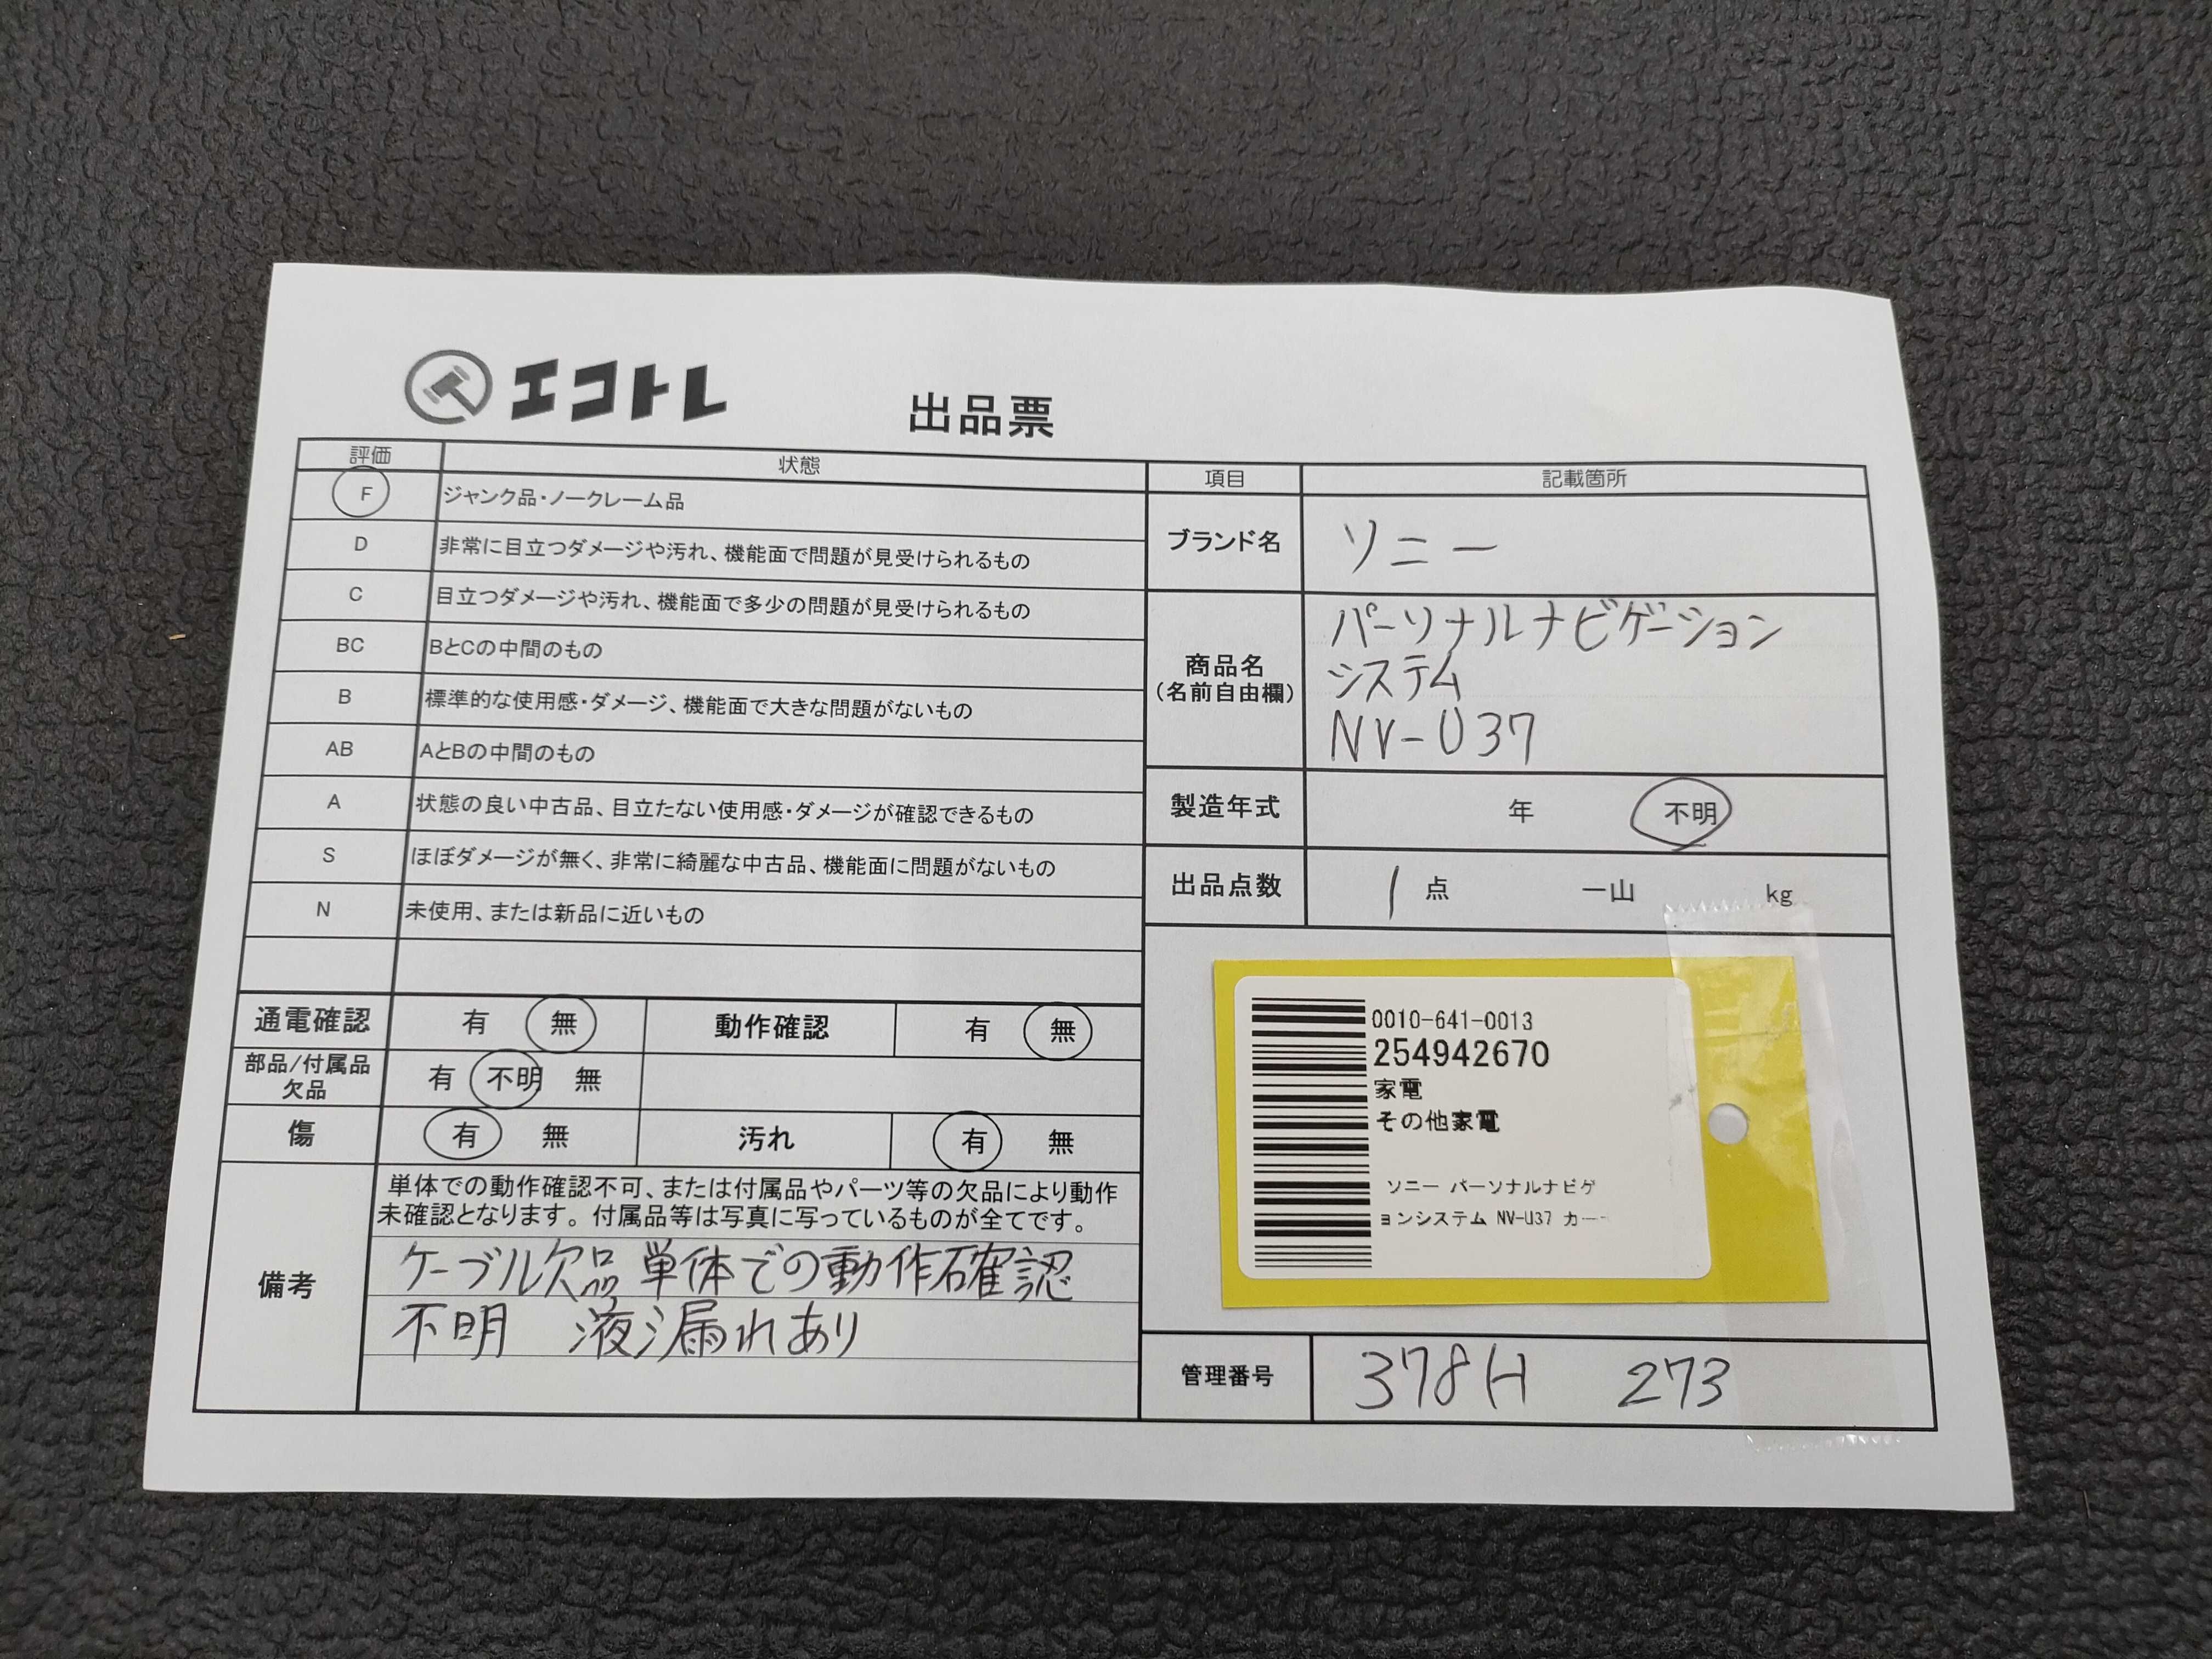 エコトレ
出品票
評価 状態
F ジャンク品・ノークレーム品
D 非常に目立つダメージや汚れ、機能面で問題が見受けられるもの
C 目立つダメージや汚れ、機能面で多少の問題が見受けられるもの
BC BとCの中間のもの
B 標準的な使用感・ダメージ、機能面で大きな問題がないもの
AB AとBの中間のもの
A 状態の良い中古品、目立たない使用感・ダメージが確認できるもの
S ほぼダメージが無く、非常に綺麗な中古品、機能面に問題がないもの
N 未使用、または新品に近いもの
通電確認 有 無 動作確認 有 無
部品/付属品
欠品
有 不明 無
傷 有 無 汚れ 有 無
備考
単体での動作確認不可、または付属品やパーツ等の欠品により動作
未確認となります。付属品等は写真に写っているものが全てです。
ケーブル欠品 単体での動作確認
不明 液漏れあり
項目 記載箇所
ブランド名 ソニー
商品名
(名前自由欄)
パーソナルナビゲーション
システム
NV-U37
製造年式 年 不明
出品点数 1点 一山 kg
0010-641-0013
254942670
家電
その他家電
ソニー パーソナルナビゲ
ョンシステム NV-U37 カー
管理番号 378H 273